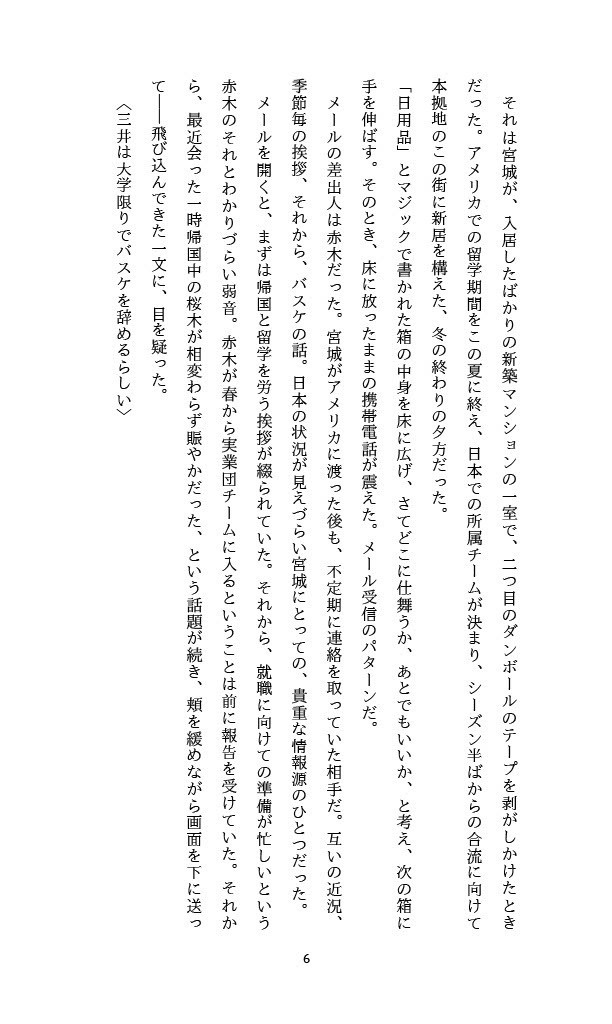 それは宮城が、入居したばかりの新築マンションの一室で、二つ目のダンボールのテープを剥がしかけたとき
だった。アメリカでの留学期間をこの夏に終え、日本での所属チームが決まり、シーズン半ばからの合流に向けて
本拠地のこの街に新居を構えた、冬の終わりの夕方だった。
「日用品」とマジックで書かれた箱の中身を床に広げ、さてどこに仕舞うか、あとでもいいか、と考え、次の箱に
手を伸ばす。そのとき、床に放ったままの携帯電話が震えた。メール受信のパターンだ。
　メールの差出人は赤木だった。宮城がアメリカに渡った後も、不定期に連絡を取っていた相手だ。互いの近況、
季節毎の挨拶、それから、バスケの話。日本の状況が見えづらい宮城にとっての、貴重な情報源のひとつだった。
　メールを開くと、まずは帰国と留学を労う挨拶が綴られていた。それから、就職に向けての準備が忙しいという
赤木のそれとわかりづらい弱音。赤木が春から実業団チームに入るということは前に報告を受けていた。それか
ら、最近会った一時帰国中の桜木が相変わらず賑やかだった、という話題が続き、頬を緩めながら画面を下に送っ
て――飛び込んできた一文に、目を疑った。
〈三井は大学限りでバスケを辞めるらしい〉
6